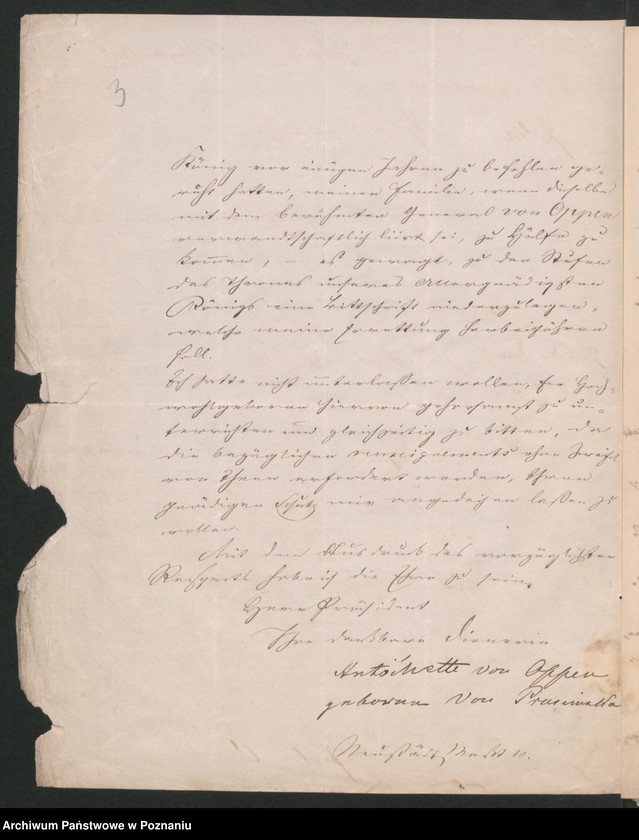 3
König vor einigen Jahren zu befehlen ge-
ruht hatten, meiner Familie, wenn dieselbe
mit dem berühmten General von Oppen
verwandtschaftlich liirt sei, zu Hülfe zu
kommen, – es gewagt, zu den Stufen
des Thrones unseres Allergnädigsten
Königs eine Bittschrift niederzulegen,
welche meine Errettung herbeiführen
soll.
Ich hatte nicht unterlassen wollen, Ew Hoch-
wohlgeboren hiervon gehorsamst zu un-
terrichten und gleichzeitig zu bitten, da
die bezüglichen ohne Zweifel
von Ihnen erfordert werden, Ihren
gnädigen Schutz mir angedeihen lassen zu
wollen.
Mit dem Ausdruck des vorzüglichsten
Respects habe ich die Ehre zu sein,
Herr Präsident
Ihre dankbare Dienerin
Antoinette von Oppen
geborne von
Neustädt. Markt 10.
Archiwum Państwowe w Poznaniu